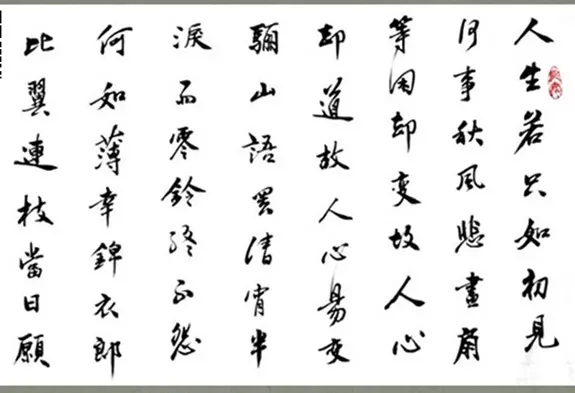 人生若只如初見
何事秋風悲畫扇
等閑却變故人心
却道故人心易变
驪山語罷清宵半
淚雨零鈴終不怨
何如薄幸錦衣郎
比翼連枝當日願